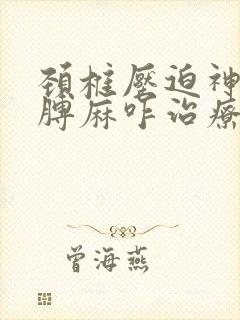 颈椎壓迫神
膊麻咋治療
曾海燕